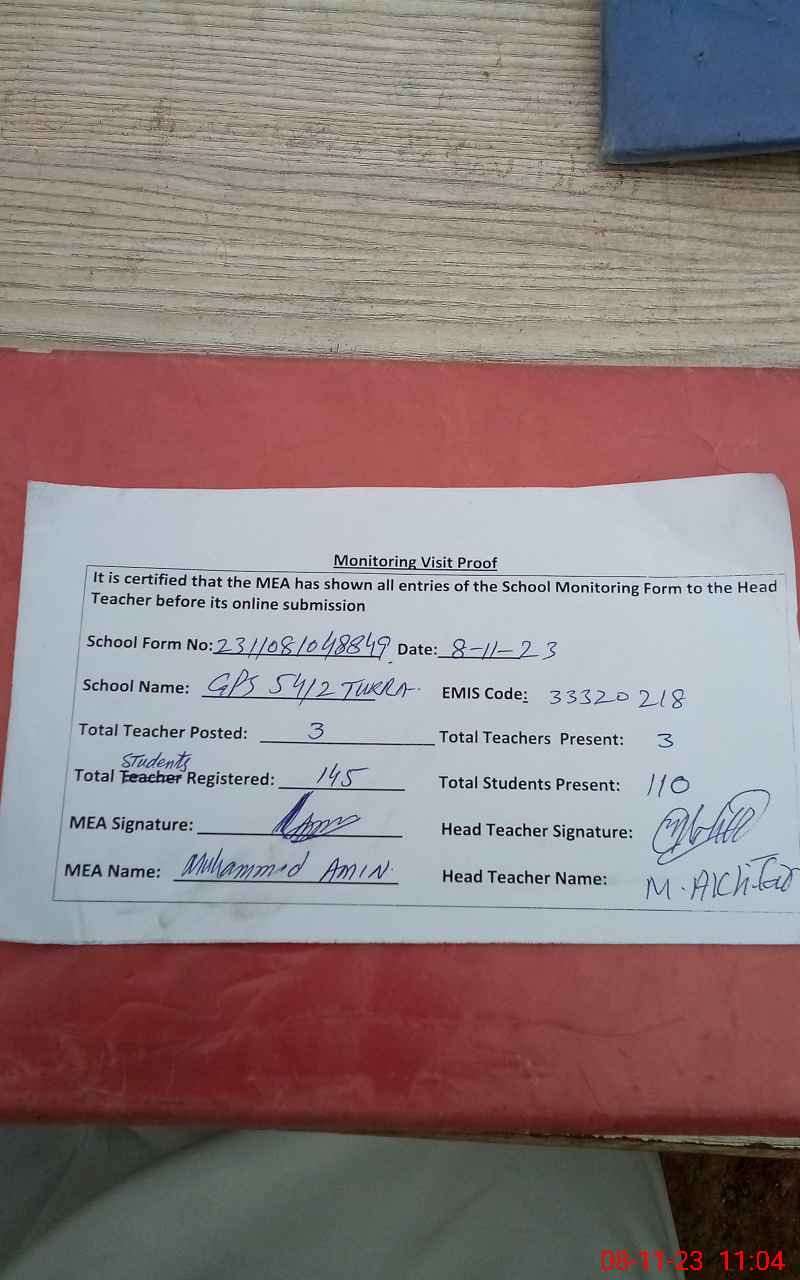 Monitoring Visit Proof
It is certified that the MEA has shown all entries of the School Monitoring Form to the Head
Teacher before its online submission
School Form No: 2311081048849 Date: 8-11-23
School Name: GPS 54/2 TUKRA. EMIS Code: 33320218
Total Teacher Posted: 3 Total Teachers Present: 3
Students
Total Teacher Registered: 145 Total Students Present: 110
MEA Signature: Head Teacher Signature:
MEA Name: Muhammad AMIN. Head Teacher Name: M. Akhtar
08-11-23 11:04